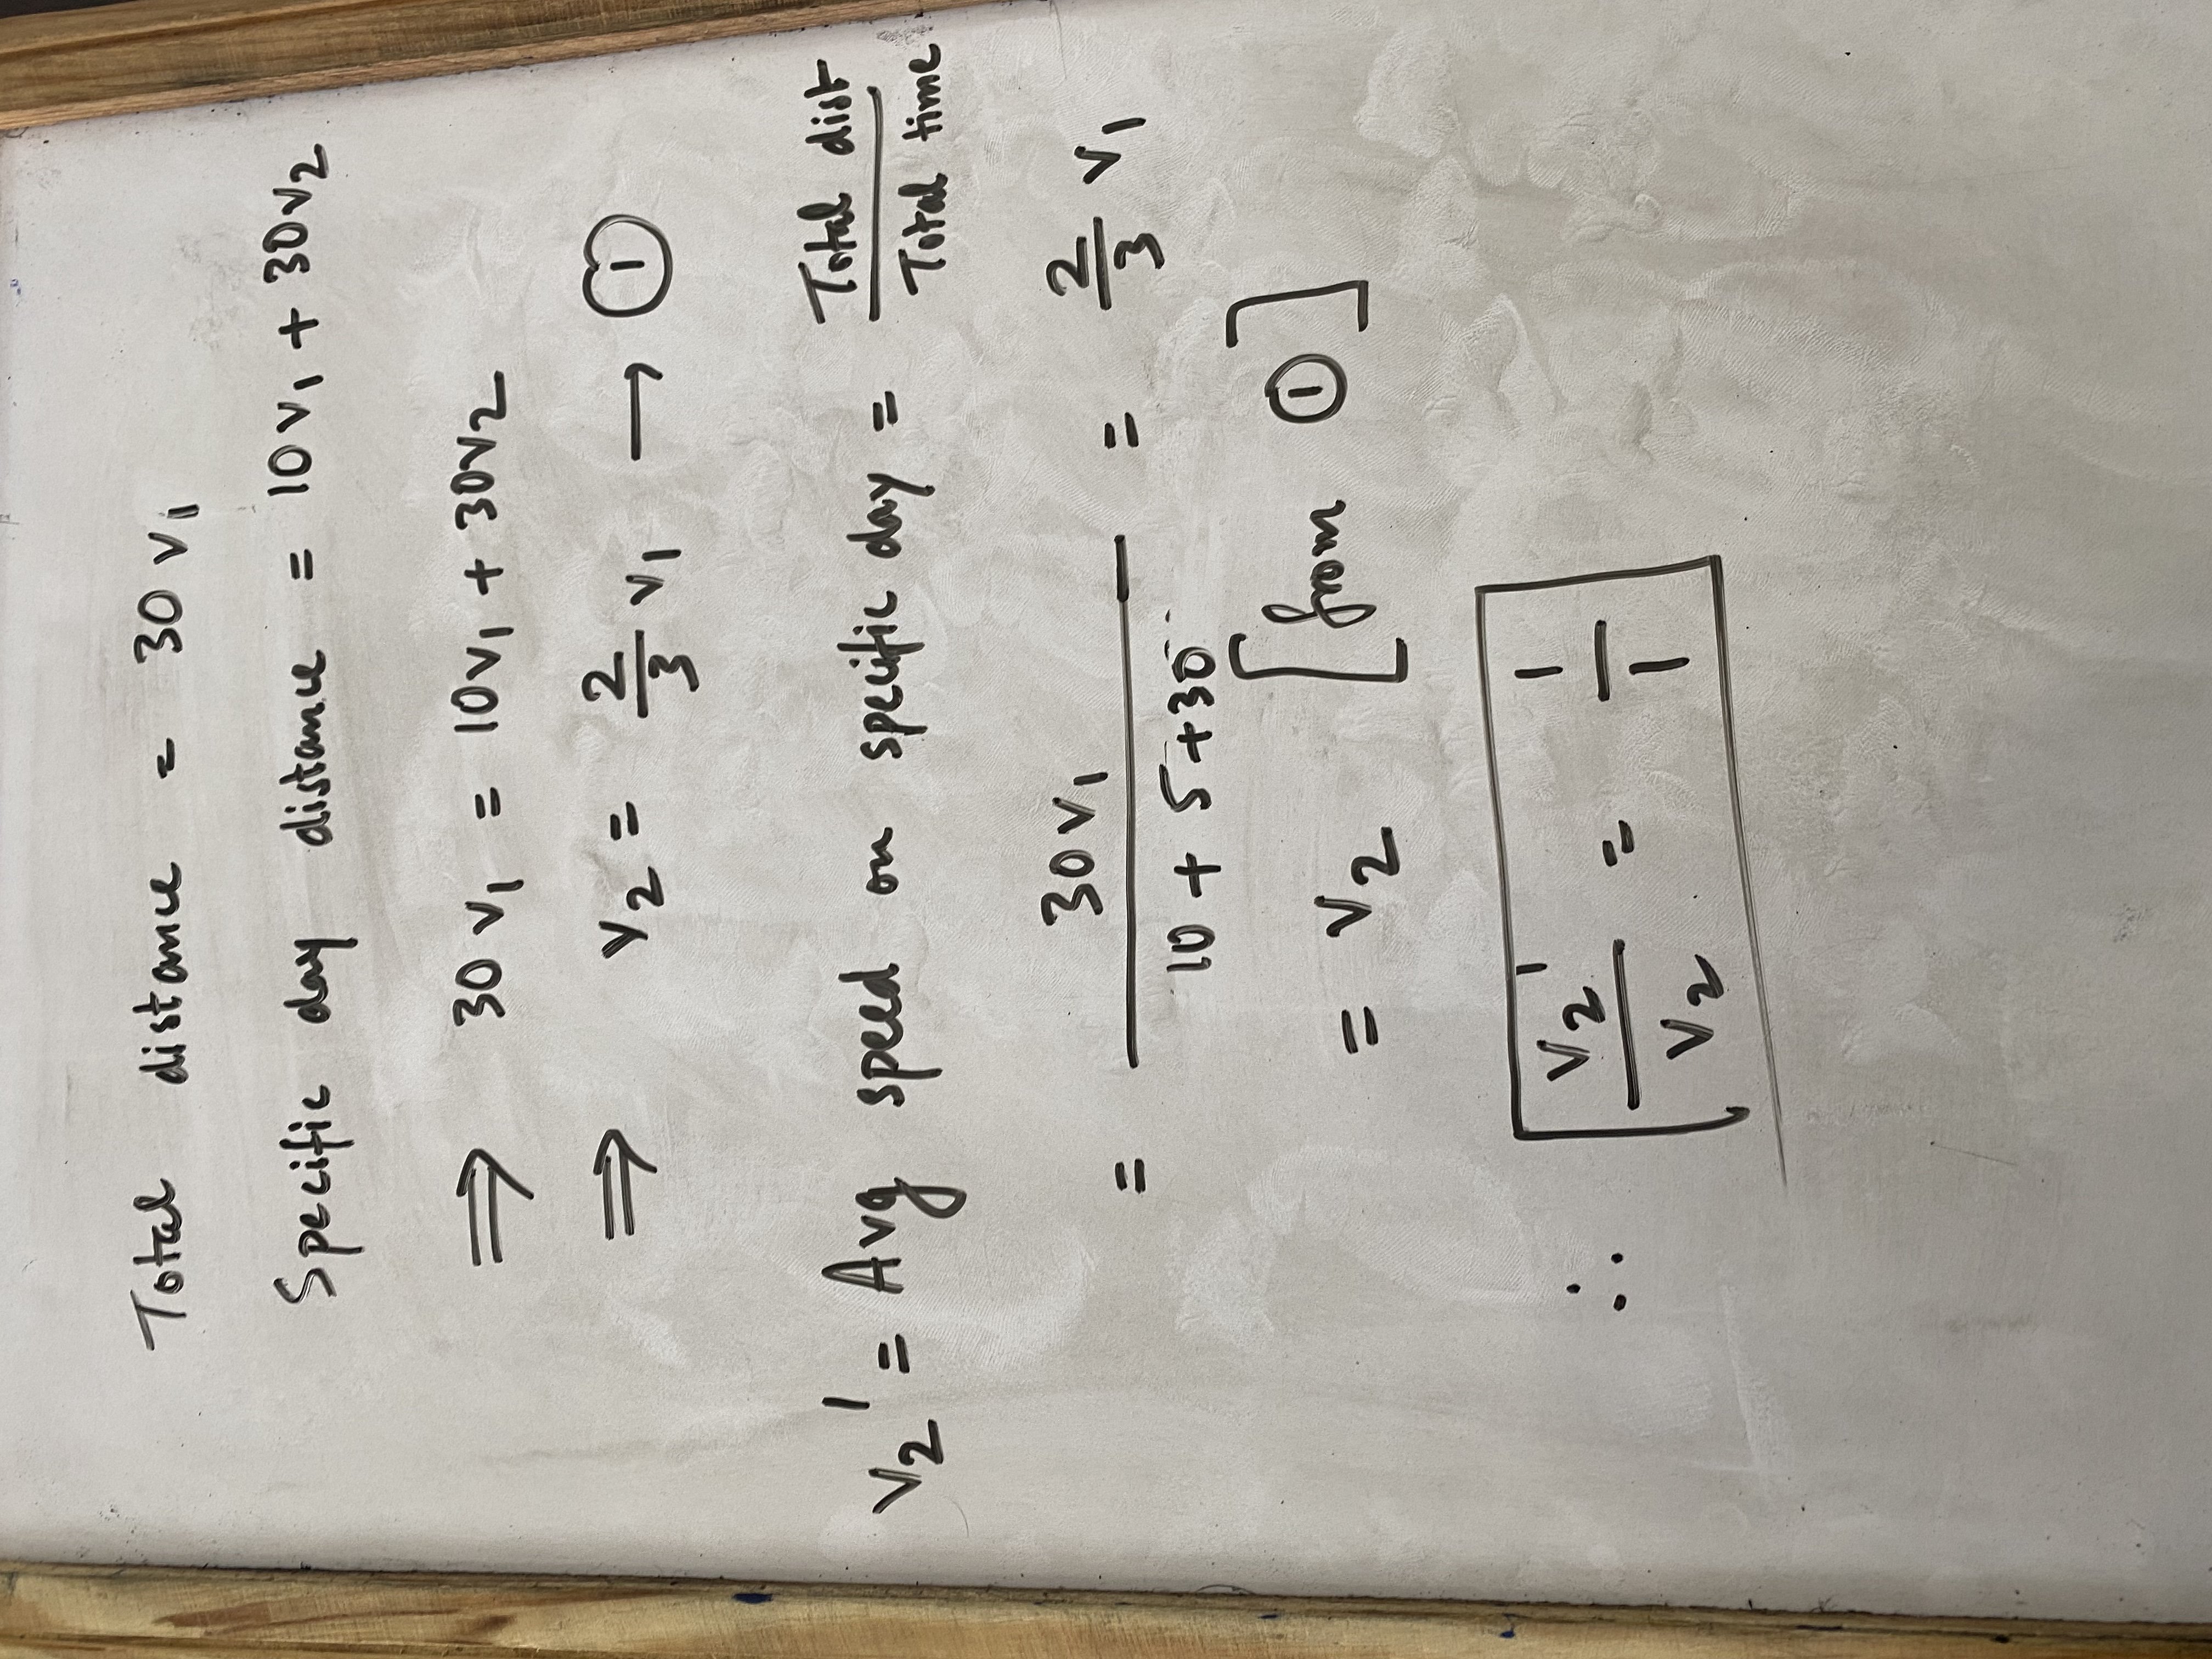 Total distance = 30 v₁
Specific day distance = 10 v₁ + 30 v₂
⇒ 30 v₁ = 10 v₁ + 30 v₂
⇒ v₂ = 2/3 v₁ → ①
v₂' = Avg speed on specific day = Total dist / Total time
= 30 v₁ / 10 + 5 + 30 = 2/3 v₁
= v₂ [from ①]
∴ v₂' / v₂ = 1/1